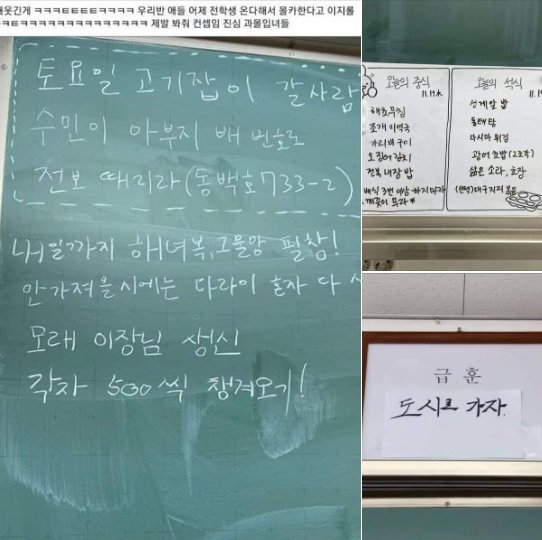 개웃긴게 ㅋㅋㅋㅌㅌㅌㅌㅋㅋㅋㅋ 우리반 애들 어제 전학생 온다해서 몰카한다고 이지롤
ㅋㅋㅌㅋㅋㅋㅋㅋㅋㅋㅋㅋㅋㅋㅋㅋㅋ 제발 봐줘 컨셉임 진심 과몰입녀들
토요일 고기잡이 갈사람
수민이 아부지 배 번호로
전보 때리라(동백호733-2)
내일까지 해녀복,그물망 필참!
안 가져올시에는 다라이 혼자 다
모래 이장님 생신
각자 500씩 챙겨오기!
오늘의 중식
11.19
해초무침
조개 미역국
가리비 구이
오징어 김치
전복 내장 밥
오늘의 석식
11.19
성게알 밥
동태탕
다시마 튀김
광어 초밥(2조각)
삶은 소라, 초장
급 훈
도시로 가자.